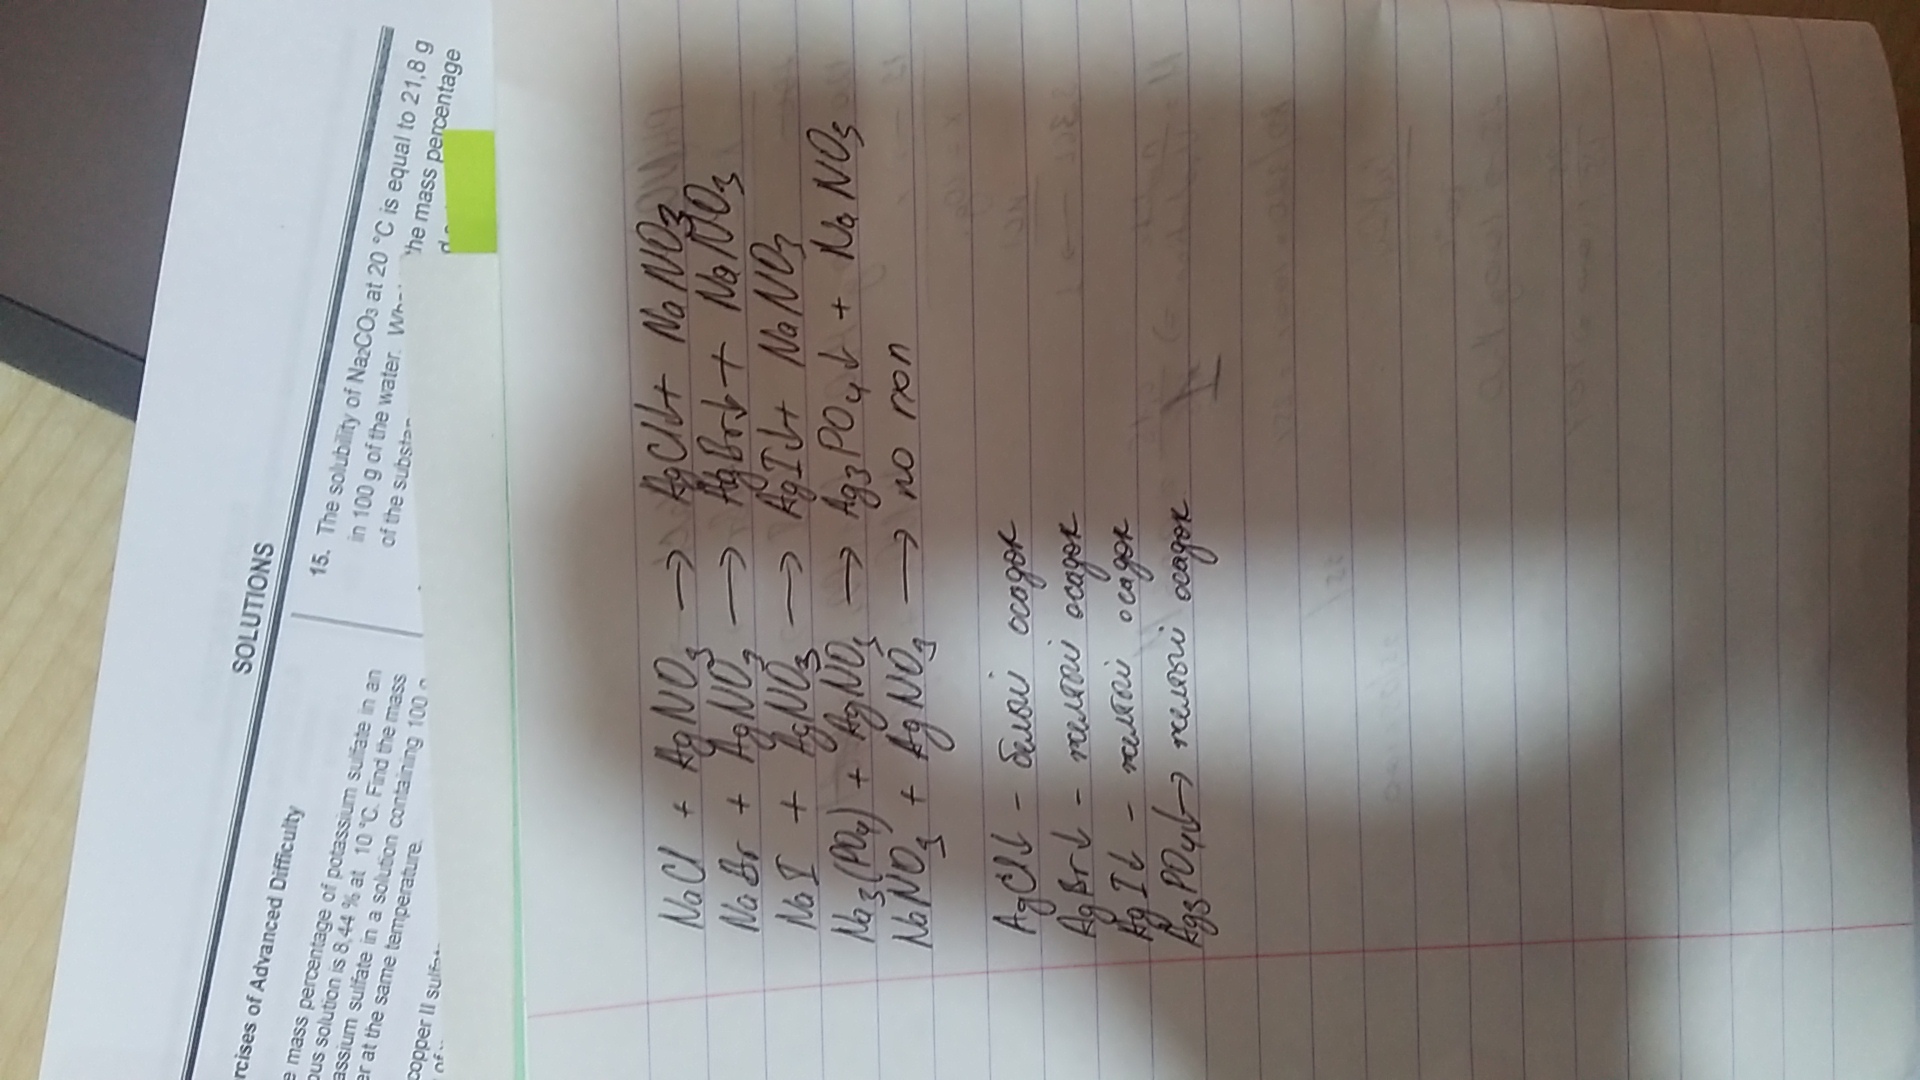 SOLUTIONS
rcises of Advanced Difficulty
e mass percentage of potassium sulfate in an
ous solution is 8,44 % at 10 °C. Find the mass
assium sulfate in a solution containing 100
er at the same temperature.
copper II
15. The solubility of Na₂CO₃ at 20 °C is equal to 21,8 g
in 100 g of the water. the mass percentage
of the
NaCl + AgNO₃ → AgCl↓ + NaNO₃
NaBr + AgNO₃ → AgBr↓ + NaNO₃
NaI + AgNO₃ → AgI↓ + NaNO₃
Na₃(PO₄) + AgNO₃ → Ag₃PO₄↓ + NaNO₃
NaNO₃ + AgNO₃ → no
AgCl↓ - белый осадок
AgBr↓ - желтый осадок
AgI↓ - желтый осадок
Ag₃PO₄↓ → желтый осадок